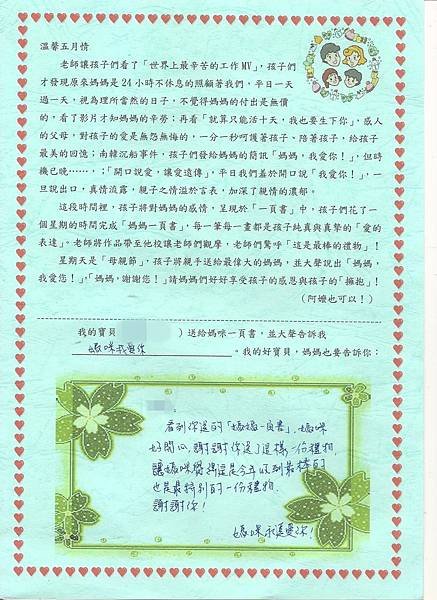 溫馨五月情
老師讓孩子們看了「世界上最辛苦的工作MV」，孩子們
才發現原來媽媽是24小時不休息的照顧著我們，平日一天
過一天，視為理所當然的日子，不覺得媽媽的付出是無價
的，看了影片才知媽媽的辛勞；再看「就算只能活十天，我也要生下你」，感人
的父母，對孩子的愛是無怨無悔的，一分一秒呵護著孩子、陪著孩子，給孩子
最美的回憶；南韓沉船事件，孩子們發給媽媽的簡訊「媽媽，我愛你！」，但時
機已晚……，；「開口說愛，讓愛遠傳」，平日我們羞於開口說「我愛你！」，一
旦說出口，真情流露，親子之情溢於言表，加深了親情的濃郁。
這段時間裡，孩子將對媽媽的感情，呈現於「一頁書」中，孩子們花了一
個星期的時間完成「媽媽一頁書」，每一筆每一畫都是孩子純真與真摯的「愛的
表達」。老師將作品帶至他校讓老師們觀摩，老師們驚呼「這是最棒的禮物」！
星期天是「母親節」，孩子將親手送給最偉大的媽媽，並大聲說出「媽媽，
我愛您！」，「媽媽，謝謝您！」請媽媽們好好享受孩子的感恩與孩子的「擁抱」！
（阿嬤也可以！）
我的寶貝 ）送給媽咪一頁書，並大聲告訴我
媽咪我愛你 。我的好寶貝，媽媽也要告訴你：
看到你送的「媽媽一頁書」，媽咪
好開心，謝謝你送了這樣一份禮物，
讓媽咪覺得這是今年收到最棒的
也是最特別的一份禮物，
謝謝你！
媽咪永遠愛你！